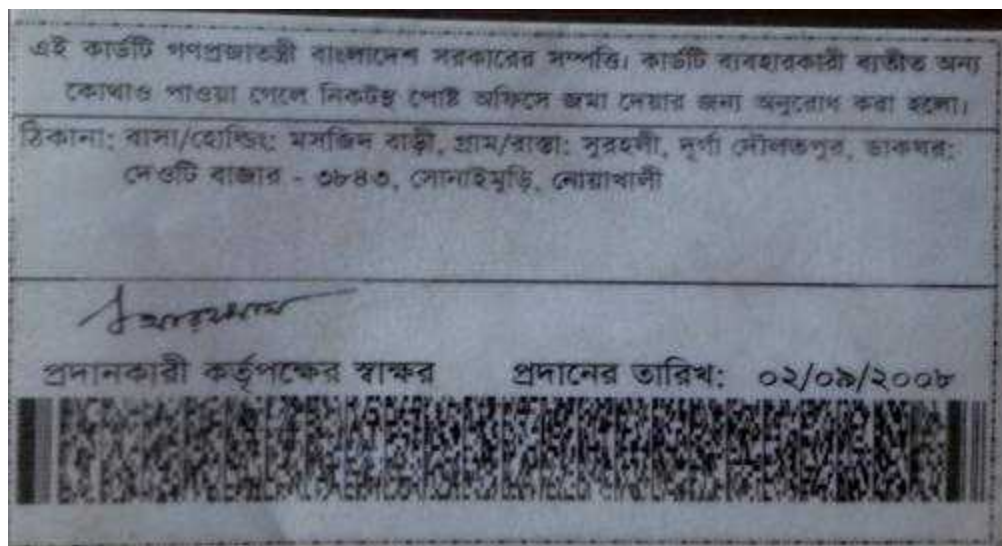 এই কার্ডটি গণপ্রজাতন্ত্রী বাংলাদেশ সরকারের সম্পত্তি। কার্ডটি ব্যবহারকারী ব্যতীত অন্য
কোথাও পাওয়া গেলে নিকটস্থ পোষ্ট অফিসে জমা দেয়ার জন্য অনুরোধ করা হলো।
ঠিকানা: বাসা/হোল্ডিং: মসজিদ বাড়ী, গ্রাম/রাস্তা: সুরহলী, দূর্গা দৌলতপুর, ডাকঘর:
দেওটি বাজার - ৩৮৪৩, সোনাইমুড়ি, নোয়াখালী
প্রদানকারী কর্তৃপক্ষের স্বাক্ষর প্রদানের তারিখ: ০২/০৯/২০০৮